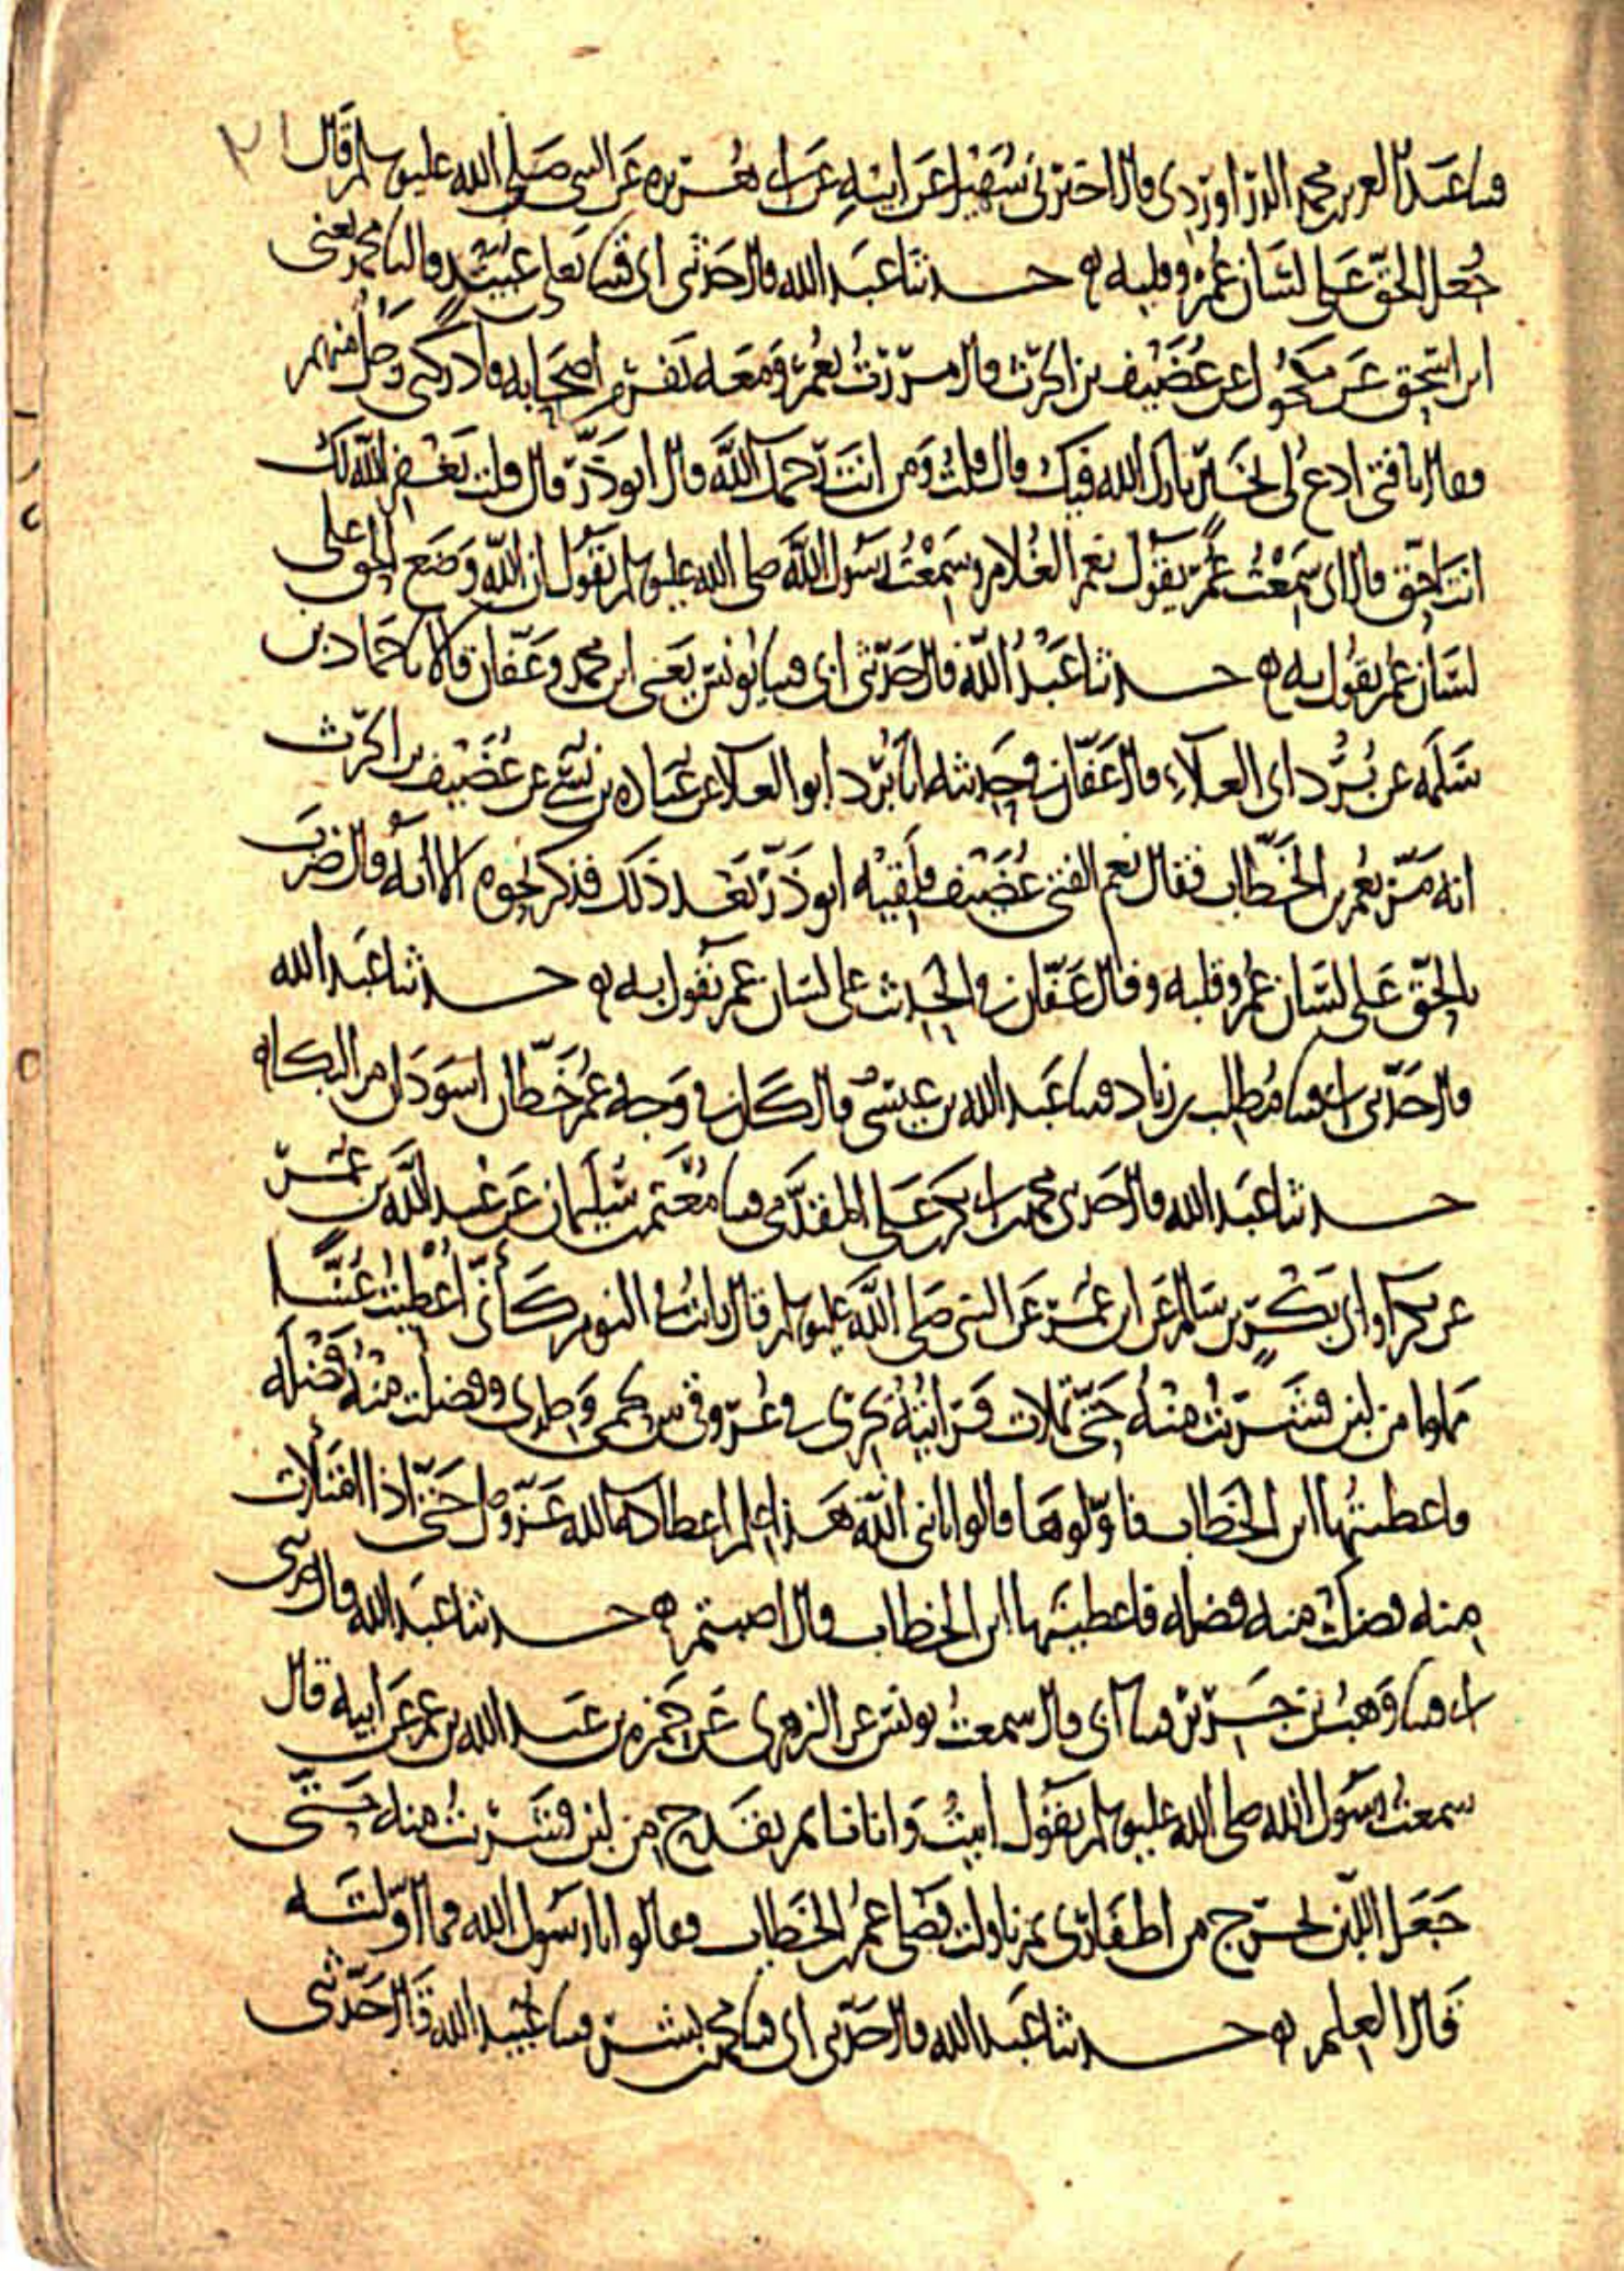 ٢١
قثنا عبد العزيز بن محمد الدراوردي قال اخبرني سهيل عن ابيه عن ابي هريرة عن النبي صلى الله عليه وسلم قال
جعل الحق على لسان عمر وقلبه ه حدثنا عبد الله قال حدثني ابي قثنا يعلى بن عبيد قال نا محمد يعني
ابن اسحق عن مكحول عن غضيف بن الحرث قال مررت بعمر ومعه نفر من اصحابه فادركني رجل منهم
فقال يا فتى ادع لي بخير بارك الله فيك قال قلت ومن انت رحمك الله قال ابو ذر قال قلت يغفر الله لك
انت احق قال اني سمعت عمر يقول نعم الغلام وسمعت رسول الله صلى الله عليه وسلم يقول ان الله وضع الحق على
لسان عمر يقول به ه حدثنا عبد الله قال حدثني ابي قثنا يونس يعني ابن محمد وعفان قالا نا حماد بن
سلمه عن برد ابي العلاء قال عفان في حديثه انا برد ابو العلا عن عباده بن نسي عن غضيف بن الحرث
انه مر بعمر بن الخطاب فقال نعم الفتى غضيف فلقيه ابو ذر بعد ذلك فذكر نحوه الا انه قال ضرب
بالحق على لسان عمر وقلبه وقال عفان في الحديث على لسان عمر يقول به ه حدثنا عبد الله
قال حدثني ابي قثنا مطلب بن زياد قثنا عبد الله بن عيسى قال كان في وجه عمر خطان اسودان من البكا ه
حدثنا عبد الله قال حدثني محمد بن ابي بكر بن علي المقدمي قثنا معتمر بن سليمان عن عبيد الله بن عمر
عن بكر او ابي بكر بن سالم عن ابن عمر عن النبي صلى الله عليه وسلم قال رايت في النوم كأني اعطيت عسا
مملوا من لبن فشربت منه حتى تملات فرايته يجري في عروقي بين لحمي وجلدي وفضلت منه فضله
فاعطيتها ابن الخطاب فاولوها قالوا يا نبي الله هذا علم اعطاكه الله عز وجل حتى اذا امتلات
منه فضلت منه فضله فاعطيتها ابن الخطاب قال اصبتم ه حدثنا عبد الله قال حدثني
ابي قثنا وهب بن جرير قثنا ابي قال سمعت يونس عن الزهري عن حمزه بن عبد الله بن عمر عن ابيه قال
سمعت رسول الله صلى الله عليه وسلم يقول اتيت وانا نائم بقدح من لبن فشربت منه حتى
جعل اللبن يخرج من اظفاري ثم ناولت فضلي عمر بن الخطاب فقالوا يا رسول الله فما اولته
قال العلم ه حدثنا عبد الله قال حدثني ابي قثنا محمد بن بشر قثنا عبيد الله قال حدثني